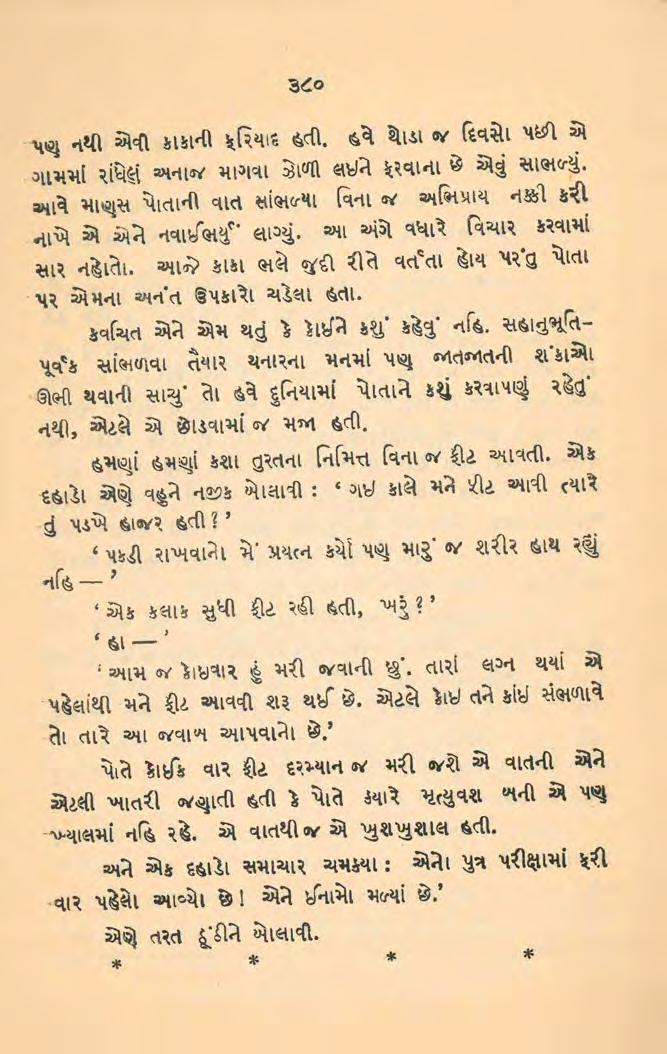 ૩૮૦
પણ નથી એવી કાકાની ફરિયાદ હતી. હવે થોડા જ દિવસો પછી એ
ગામમાં રાંધેલું અનાજ માગવા ઝોળી લઇને ફરવાના છે એવું સાભળ્યું.
આવે માણુસ પોતાની વાત સાંભળ્યા વિના જ અભિપ્રાય નક્કી કરી
નાખે એ એને નવાઈભર્યું લાગ્યું. આ અંગે વધારે વિચાર કરવામાં
સાર નહોતો. આજે કાકા ભલે જુદી રીતે વર્તતા હોય પરંતુ પોતા
પર એમના અનંત ઉપકારો ચડેલા હતા.
કવચિત એને એમ થતું કે કોઈને કશું કહેવું નહિ. સહાનુભૂતિ–
પૂર્વક સાંભળવા તૈયાર થનારના મનમાં પણ જાતજાતની શંકાઓ
ઊભી થવાની સાચું તો હવે દુનિયામાં પોતાને કશું કરવાપણું રહેતું
નથી, એટલે એ છોડવામાં જ મજા હતી.
હમણાં હમણાં કશા તુરતના નિમિત્ત વિના જ ફીટ આવતી. એક
દહાડો એણે વહુને નજીક બોલાવી : ‘ ગઇ કાલે મને ફીટ આવી ત્યારે
તું પડખે હાજર હતી ? ’
‘ પકડી રાખવાનો મેં પ્રયત્ન કર્યો પણ મારું જ શરીર હાથ રહ્યું
નહિ — ’
‘ એક કલાક સુધી ફીટ રહી હતી, ખરૂં ? ’
‘ હા — ’
‘ આમ જ કોઇવાર હું મરી જવાની છું. તારાં લગ્ન થયાં એ
પહેલાંથી મને ફીટ આવવી શરૂ થઈ છે. એટલે કોઇ તને કાંઇ સંભળાવે
તો તારે આ જવાબ આપવાનો છે.’
પોતે કોઈક વાર ફીટ દરમ્યાન જ મરી જશે એ વાતની એને
એટલી ખાતરી જણાતી હતી કે પોતે ક્યારે મૃત્યુવશ બની એ પણ
ખ્યાલમાં નહિ રહે. એ વાતથી જ એ ખુશખુશાલ હતી.
અને એક દહાડો સમાચાર ચમક્યા : એનો પુત્ર પરીક્ષામાં ફરી
વાર પહેલો આવ્યો છે ! એને ઈનામો મળ્યાં છે.’
એણે તરત ઢૂંઢીને બોલાવી.
* * * *